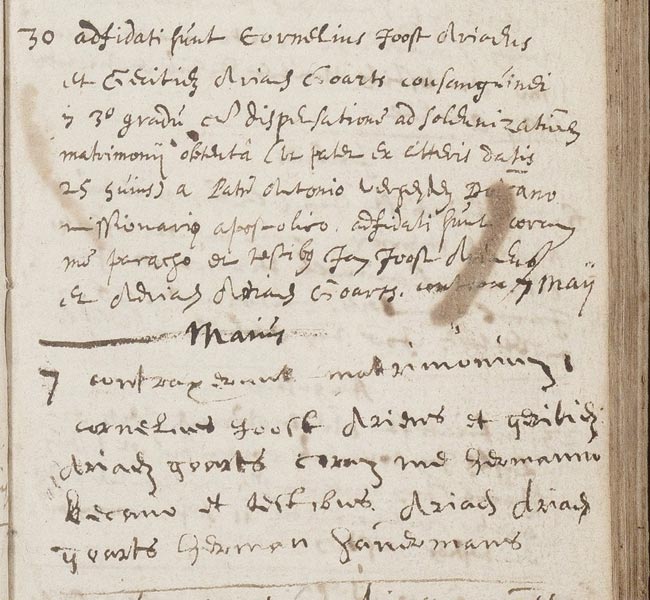 30 adfidati sunt Cornelius Joost Ariaens
et Geritien Ariaens Goarts consanguinei
in 3º gradu cū dispensatione ad solemnizationem
matrimonij obtentâ (ut patet ex litteris datis
25 huius) a Patre Antonio Verheyden Decano
missionario apostolico. adfidati sunt coram
me parocho et testibus Jan Joost
et Adriaen Ariaens Goarts. 7 Maij
Maius
7 contraxerunt matrimonium
cornelius Joost Ariens et geritien
Ariaen goarts coram me hermanno
becano et testibus Ariaen Ariaen
goarts herman